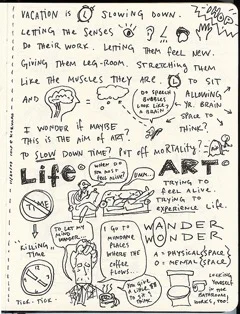 VACATION IS SLOWING DOWN.
LETTING THE SENSES
DO THEIR WORK. LETTING THEM FEEL NEW.
GIVING THEM LEG-ROOM. STRETCHING THEM
LIKE THE MUSCLES THEY ARE. TO SIT
AND
=
DO SPEECH
BUBBLES
LOOK LIKE
A BRAIN
ALLOWING
YR. BRAIN
SPACE TO
THINK?
I WONDER IF MAYBE
THIS IS THE AIM OF ART?
TO SLOW DOWN TIME? PUT OFF MORTALITY?
LIFE
WHEN DO
YOU MOST
FEEL ALIVE?
UMM...
ART
TRYING TO
FEEL ALIVE.
TRYING TO
EXPERIENCE LIFE.
TIME
"KILLING"
TIME
TICK. TICK.
TO LET MY
MIND
WANDER
I GO TO
MUNDANE
PLACES
WHERE THE
COFFEE
FLOWS...
YOU GIVE
A LIKE $8
TO SIT &
THINK.
WANDER
WONDER
A = PHYSICAL (SPACE)
O = MENTAL (SPACE)
LOCKING
YOURSELF
IN THE
BATHROOM
WORKS, TOO.